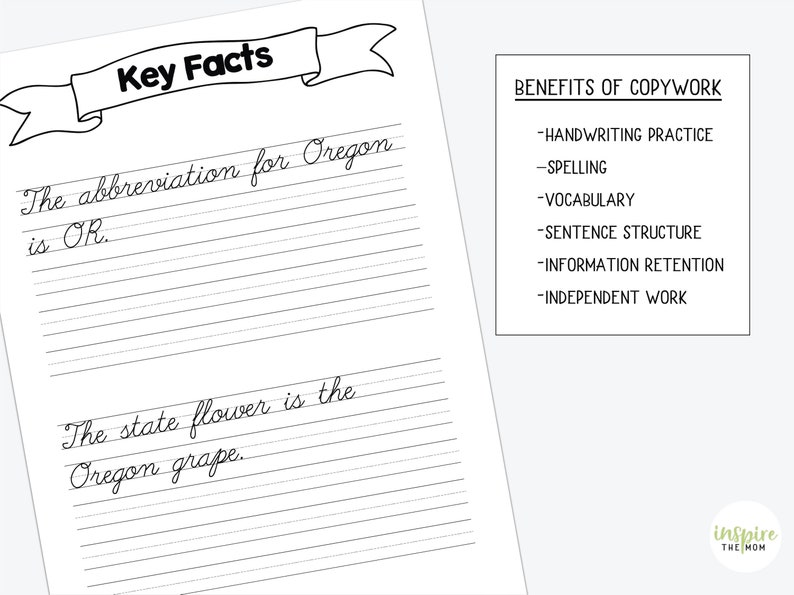 Key Facts
The abbreviation for Oregon
is OR.
The state flower is the
Oregon grape.
BENEFITS OF COPYWORK
-HANDWRITING PRACTICE
-SPELLING
-VOCABULARY
-SENTENCE STRUCTURE
-INFORMATION RETENTION
-INDEPENDENT WORK
inspire
THE MOM